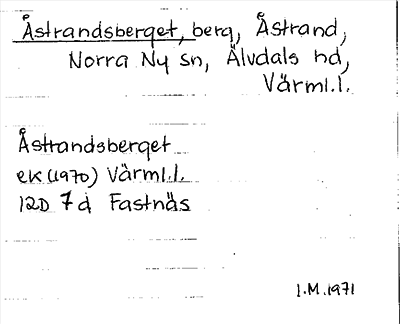 Åstrandsberget, berg, Åstrand,
Norra Ny sn, Älvdals hd,
Värml.l.
Åstrandsberget
ek (1970) Värml.l.
12D 7d Fastnäs
I.M. 1971